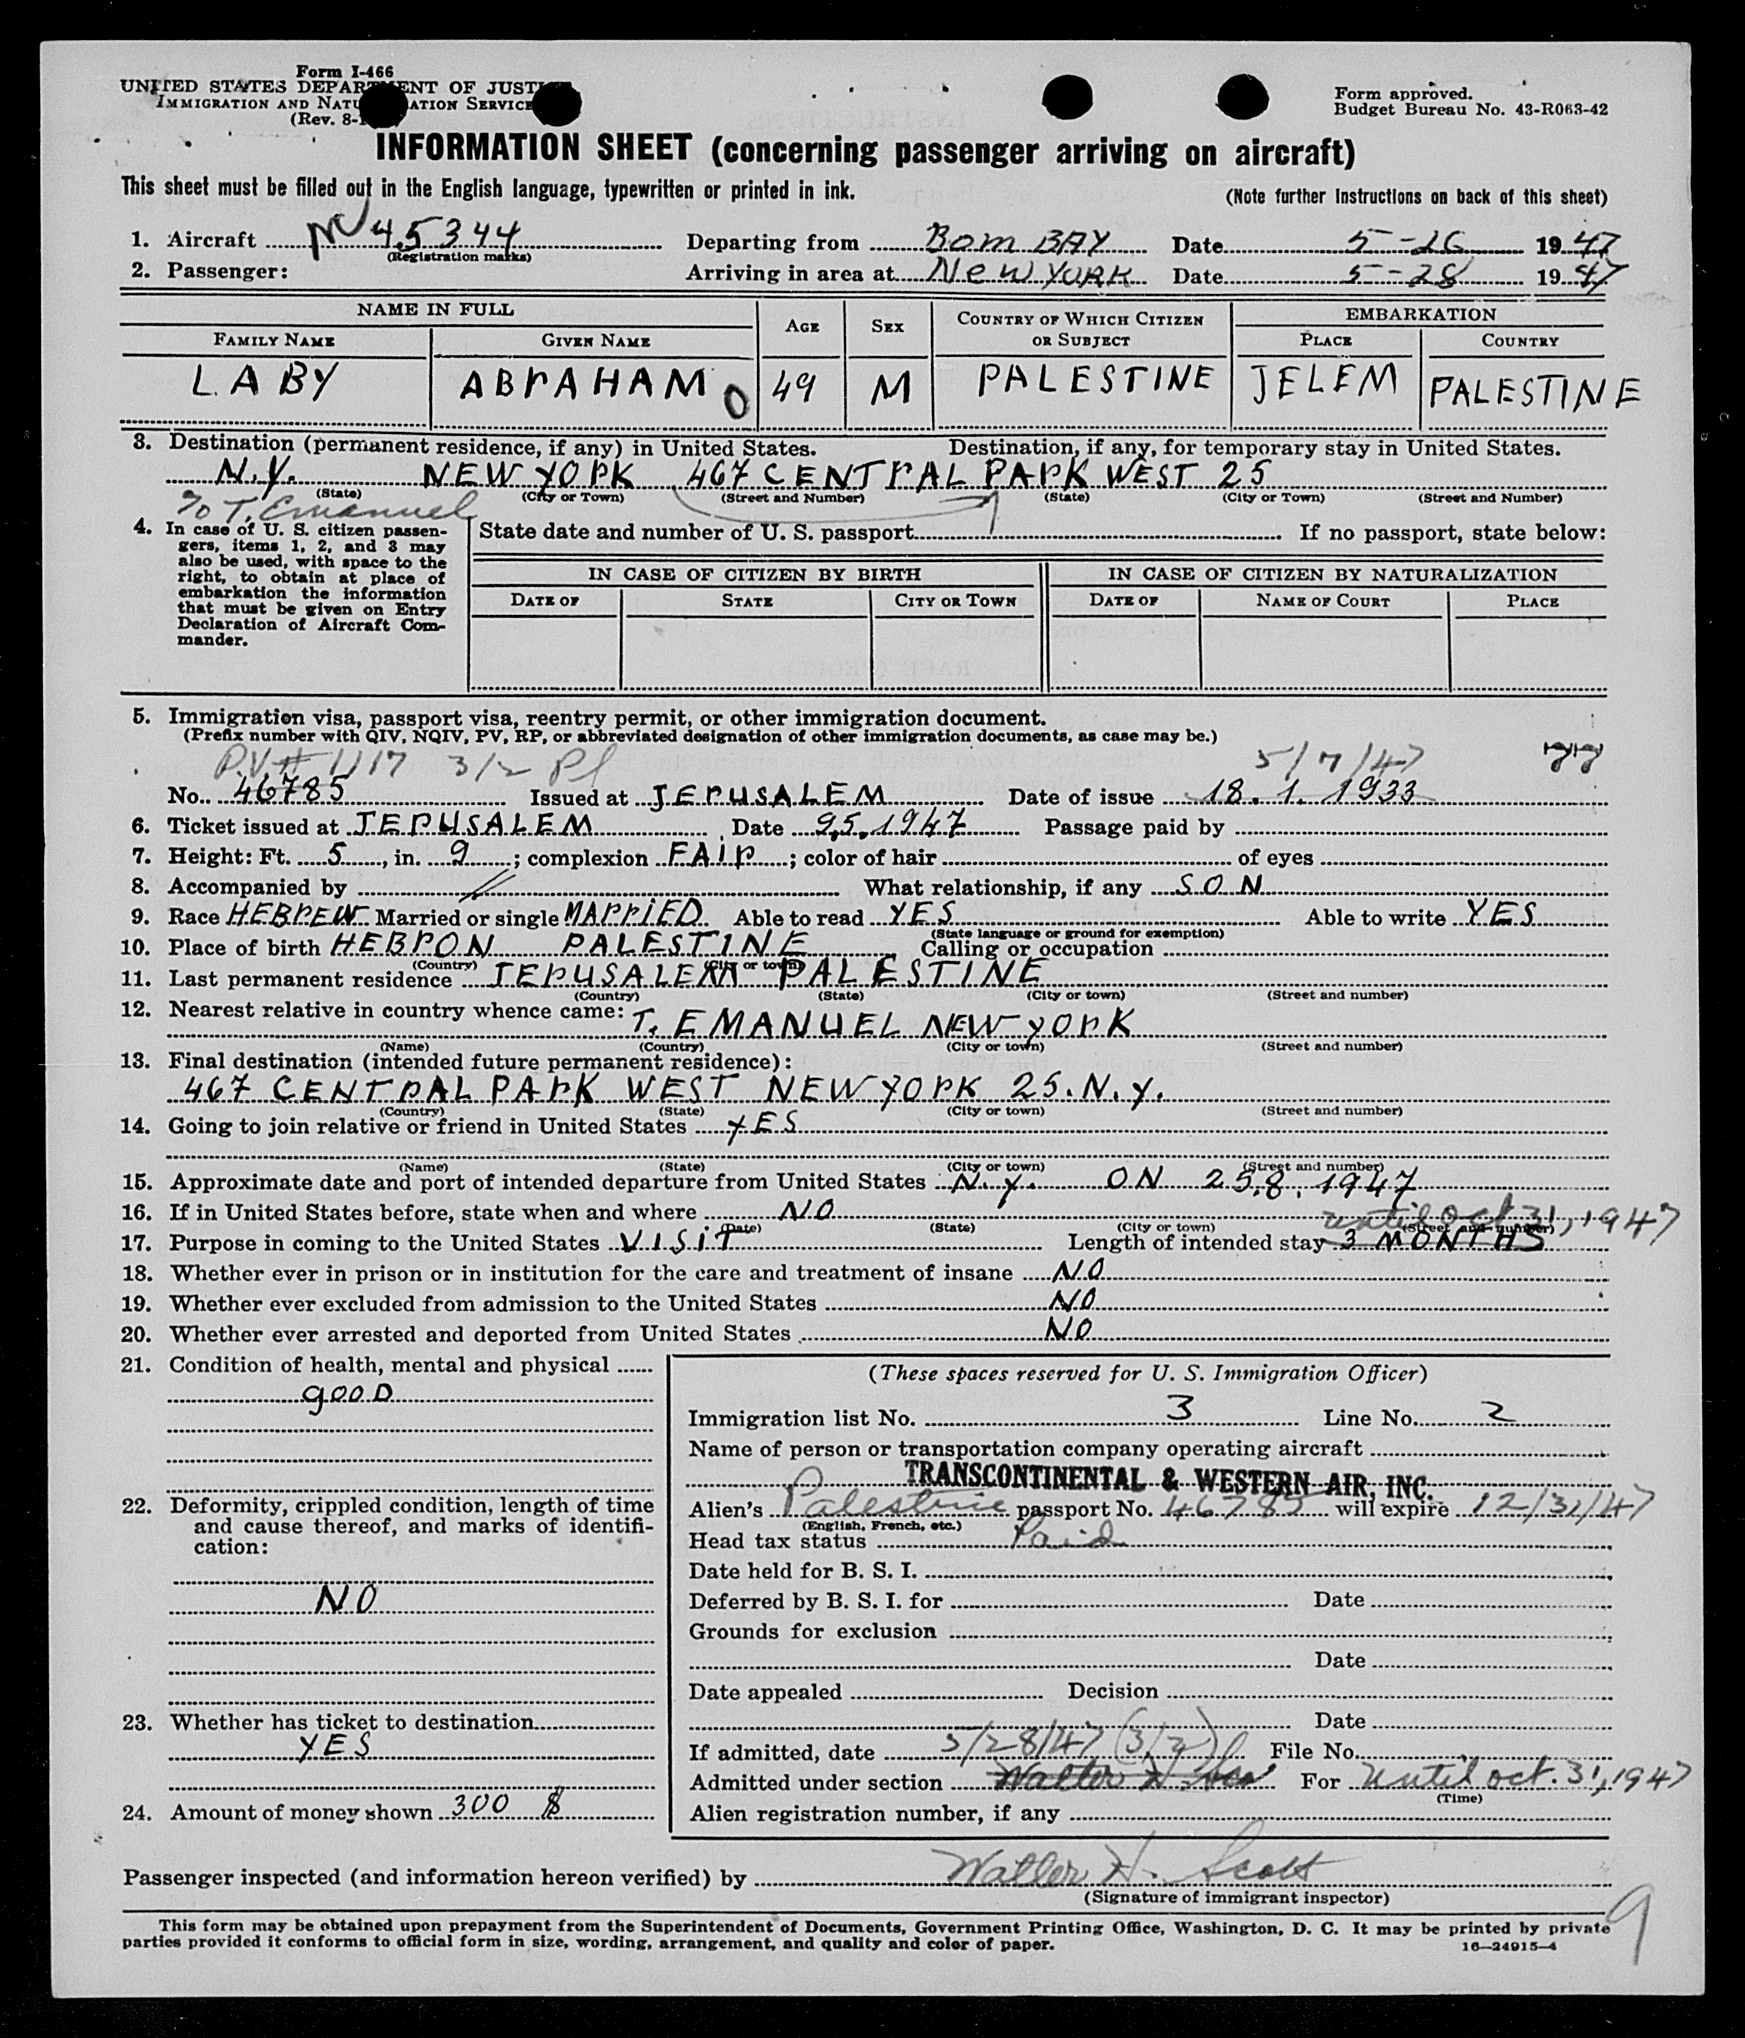 Form I-466
UNITED STATES DEPARTMENT OF JUSTICE
IMMIGRATION AND NATURALIZATION SERVICE
(Rev. 8-
Form approved.
Budget Bureau No. 43-R063-42
INFORMATION SHEET (concerning passenger arriving on aircraft)
This sheet must be filled out in the English language, typewritten or printed in ink.
(Note further instructions on back of this sheet)
1. Aircraft 45344 Departing from BOMBAY Date 5-26 1947
(Registration marks)
2. Passenger: Arriving in area at NEW YORK Date 5-28 1947
NAME IN FULL AGE SEX COUNTRY OF WHICH CITIZEN OR SUBJECT EMBARKATION
FAMILY NAME GIVEN NAME PLACE COUNTRY
LABY ABRAHAM 49 M PALESTINE JELEM PALESTINE
3. Destination (permanent residence, if any) in United States. Destination, if any, for temporary stay in United States.
N.Y. NEW YORK 467 CENTRAL PARK WEST 25
(State) (City or Town) (Street and Number) (State) (City or Town) (Street and Number)
% T. Emanuel
4. In case of U. S. citizen passengers, items 1, 2, and 3 may also be used, with space to the right, to obtain at place of embarkation the information that must be given on Entry Declaration of Aircraft Commander.
State date and number of U. S. passport If no passport, state below:
IN CASE OF CITIZEN BY BIRTH IN CASE OF CITIZEN BY NATURALIZATION
DATE OF STATE CITY OR TOWN DATE OF NAME OF COURT PLACE
5. Immigration visa, passport visa, reentry permit, or other immigration document.
(Prefix number with QIV, NQIV, PV, RP, or abbreviated designation of other immigration documents, as case may be.)
PV# 1117 3/2 Pl 5/7/47
No. 46785 Issued at JERUSALEM Date of issue 18.1.1933
6. Ticket issued at JERUSALEM Date 9.5.1947 Passage paid by
7. Height: Ft. 5, in. 9; complexion FAIR; color of hair of eyes
8. Accompanied by What relationship, if any SON
9. Race HEBREW Married or single MARRIED Able to read YES Able to write YES
(State language or ground for exemption)
10. Place of birth HEBRON PALESTINE Calling or occupation
(Country) (City or town)
11. Last permanent residence JERUSALEM PALESTINE
(Country) (State) (City or town) (Street and number)
12. Nearest relative in country whence came:
T. EMANUEL NEW YORK
(Name) (Country) (City or town) (Street and number)
13. Final destination (intended future permanent residence):
467 CENTRAL PARK WEST NEW YORK 25. N.Y.
(Country) (State) (City or town) (Street and number)
14. Going to join relative or friend in United States YES
(Name) (State) (City or town) (Street and number)
15. Approximate date and port of intended departure from United States N.Y. ON 25.8.1947
16. If in United States before, state when and where NO
(Date) (State) (City or town) (Street and number)
until Oct 31, 1947
17. Purpose in coming to the United States VISIT Length of intended stay 3 MONTHS
18. Whether ever in prison or in institution for the care and treatment of insane NO
19. Whether ever excluded from admission to the United States NO
20. Whether ever arrested and deported from United States NO
21. Condition of health, mental and physical
gooD
22. Deformity, crippled condition, length of time and cause thereof, and marks of identification:
NO
23. Whether has ticket to destination
YES
24. Amount of money shown 300 $
(These spaces reserved for U. S. Immigration Officer)
Immigration list No. 3 Line No. 2
Name of person or transportation company operating aircraft
TRANSCONTINENTAL & WESTERN AIR, INC.
Alien's Palestine passport No. 46785 will expire 12/31/47
(English, French, etc.)
Head tax status Paid
Date held for B. S. I.
Deferred by B. S. I. for Date
Grounds for exclusion
Date
Date appealed Decision
Date
If admitted, date 5/28/47 (3/2) File No.
Admitted under section For until Oct. 31, 1947
(Time)
Alien registration number, if any
Passenger inspected (and information hereon verified) by Walter H. Scott
(Signature of immigrant inspector)
9
This form may be obtained upon prepayment from the Superintendent of Documents, Government Printing Office, Washington, D. C. It may be printed by private
parties provided it conforms to official form in size, wording, arrangement, and quality and color of paper.
16—24915-4